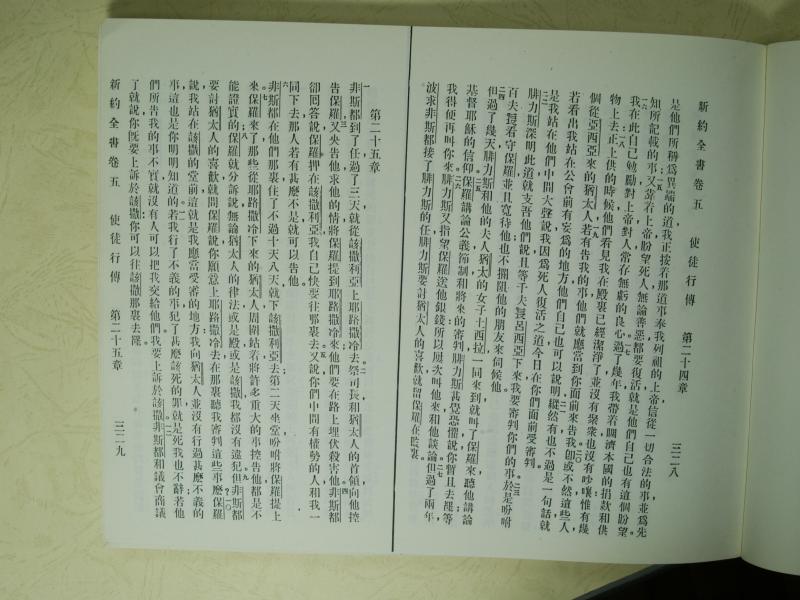 新約全書卷五　使徒行傳　第二十四章　三二八
是他們所稱爲異端的道我正按着那道事奉我列祖的上帝信從一切合法的事並爲先
知所記載的事又靠着上帝盼望死人無論善惡都要復活就是他們自己也有這個盼望
我在此自己勉勵對上帝對人常存無虧的良心過了幾年我帶着賙濟本國的捐欵和供
物上去正上供的時候他們看見我在殿裏已經潔淨了並沒有聚衆也沒有吵嚷惟有幾
個從亞西亞來的猶太人若有告我的事他們就應當到你面前來告我卽或不然這些人
若看出我站在公會前有妄爲的地方他們自己也可以說明縱然有也不過是一句話就
是我站在他們中間大聲說我因爲死人復活之道今日在你們面前受審判
腓力斯深明此道就支吾他們說且等千夫長呂西亞下來我要審判你們的事於是吩咐
百夫長看守保羅並且寬待他也不攔阻他的朋友來伺候他
但過了幾天腓力斯和他的夫人猶太的女子土西拉一同來到就叫了保羅來聽他講論
基督耶穌的信仰保羅講論公義節制和將來的審判腓力斯甚覺恐懼說你暫且去罷等
我得便再叫你來腓力斯又指望保羅送他銀錢所以屢次叫他來和他談論但過了兩年
波求非斯都接了腓力斯的任腓力斯要討猶太人的喜歡就留保羅在監裏
第二十五章
非斯都到了任過了三天就從該撒利亞上耶路撒冷去祭司長和猶太人的首領向他控
告保羅又央告他求他的情將保羅提到耶路撒冷來他們要在路上埋伏殺害他非斯都
卻囘答說保羅押在該撒利亞我自己快要往那裏去又說你們中間有權勢的人和我一
同下去那人若有甚麼不是就可以告他
非斯都在他們那裏住了不過十天八天就下該撒利亞去第二天坐堂吩咐將保羅提上
來保羅來了那些從耶路撒冷下來的猶太人周圍站着將許多重大的事控告他都是不
能證實的保羅就分訴說無論猶太人的律法或是殿或是該撒我都沒有違犯但非斯都
要討猶太人的喜歡就問保羅說你願意上耶路撒冷去在那裏聽我審判這些事麼保羅
說我站在該撒的堂前這就是我應當受審的地方我向猶太人並沒有行過甚麼不義的
事這也是你明明知道的若我行了不義的事犯了甚麼該死的罪就是死我也不辭若他
們所告我的事不實就沒有人可以把我交給他們我要上訴於該撒非斯都和議會商議
了就說你旣要上訴於該撒你可以往該撒那裏去罷
新約全書卷五　使徒行傳　第二十五章　三二九